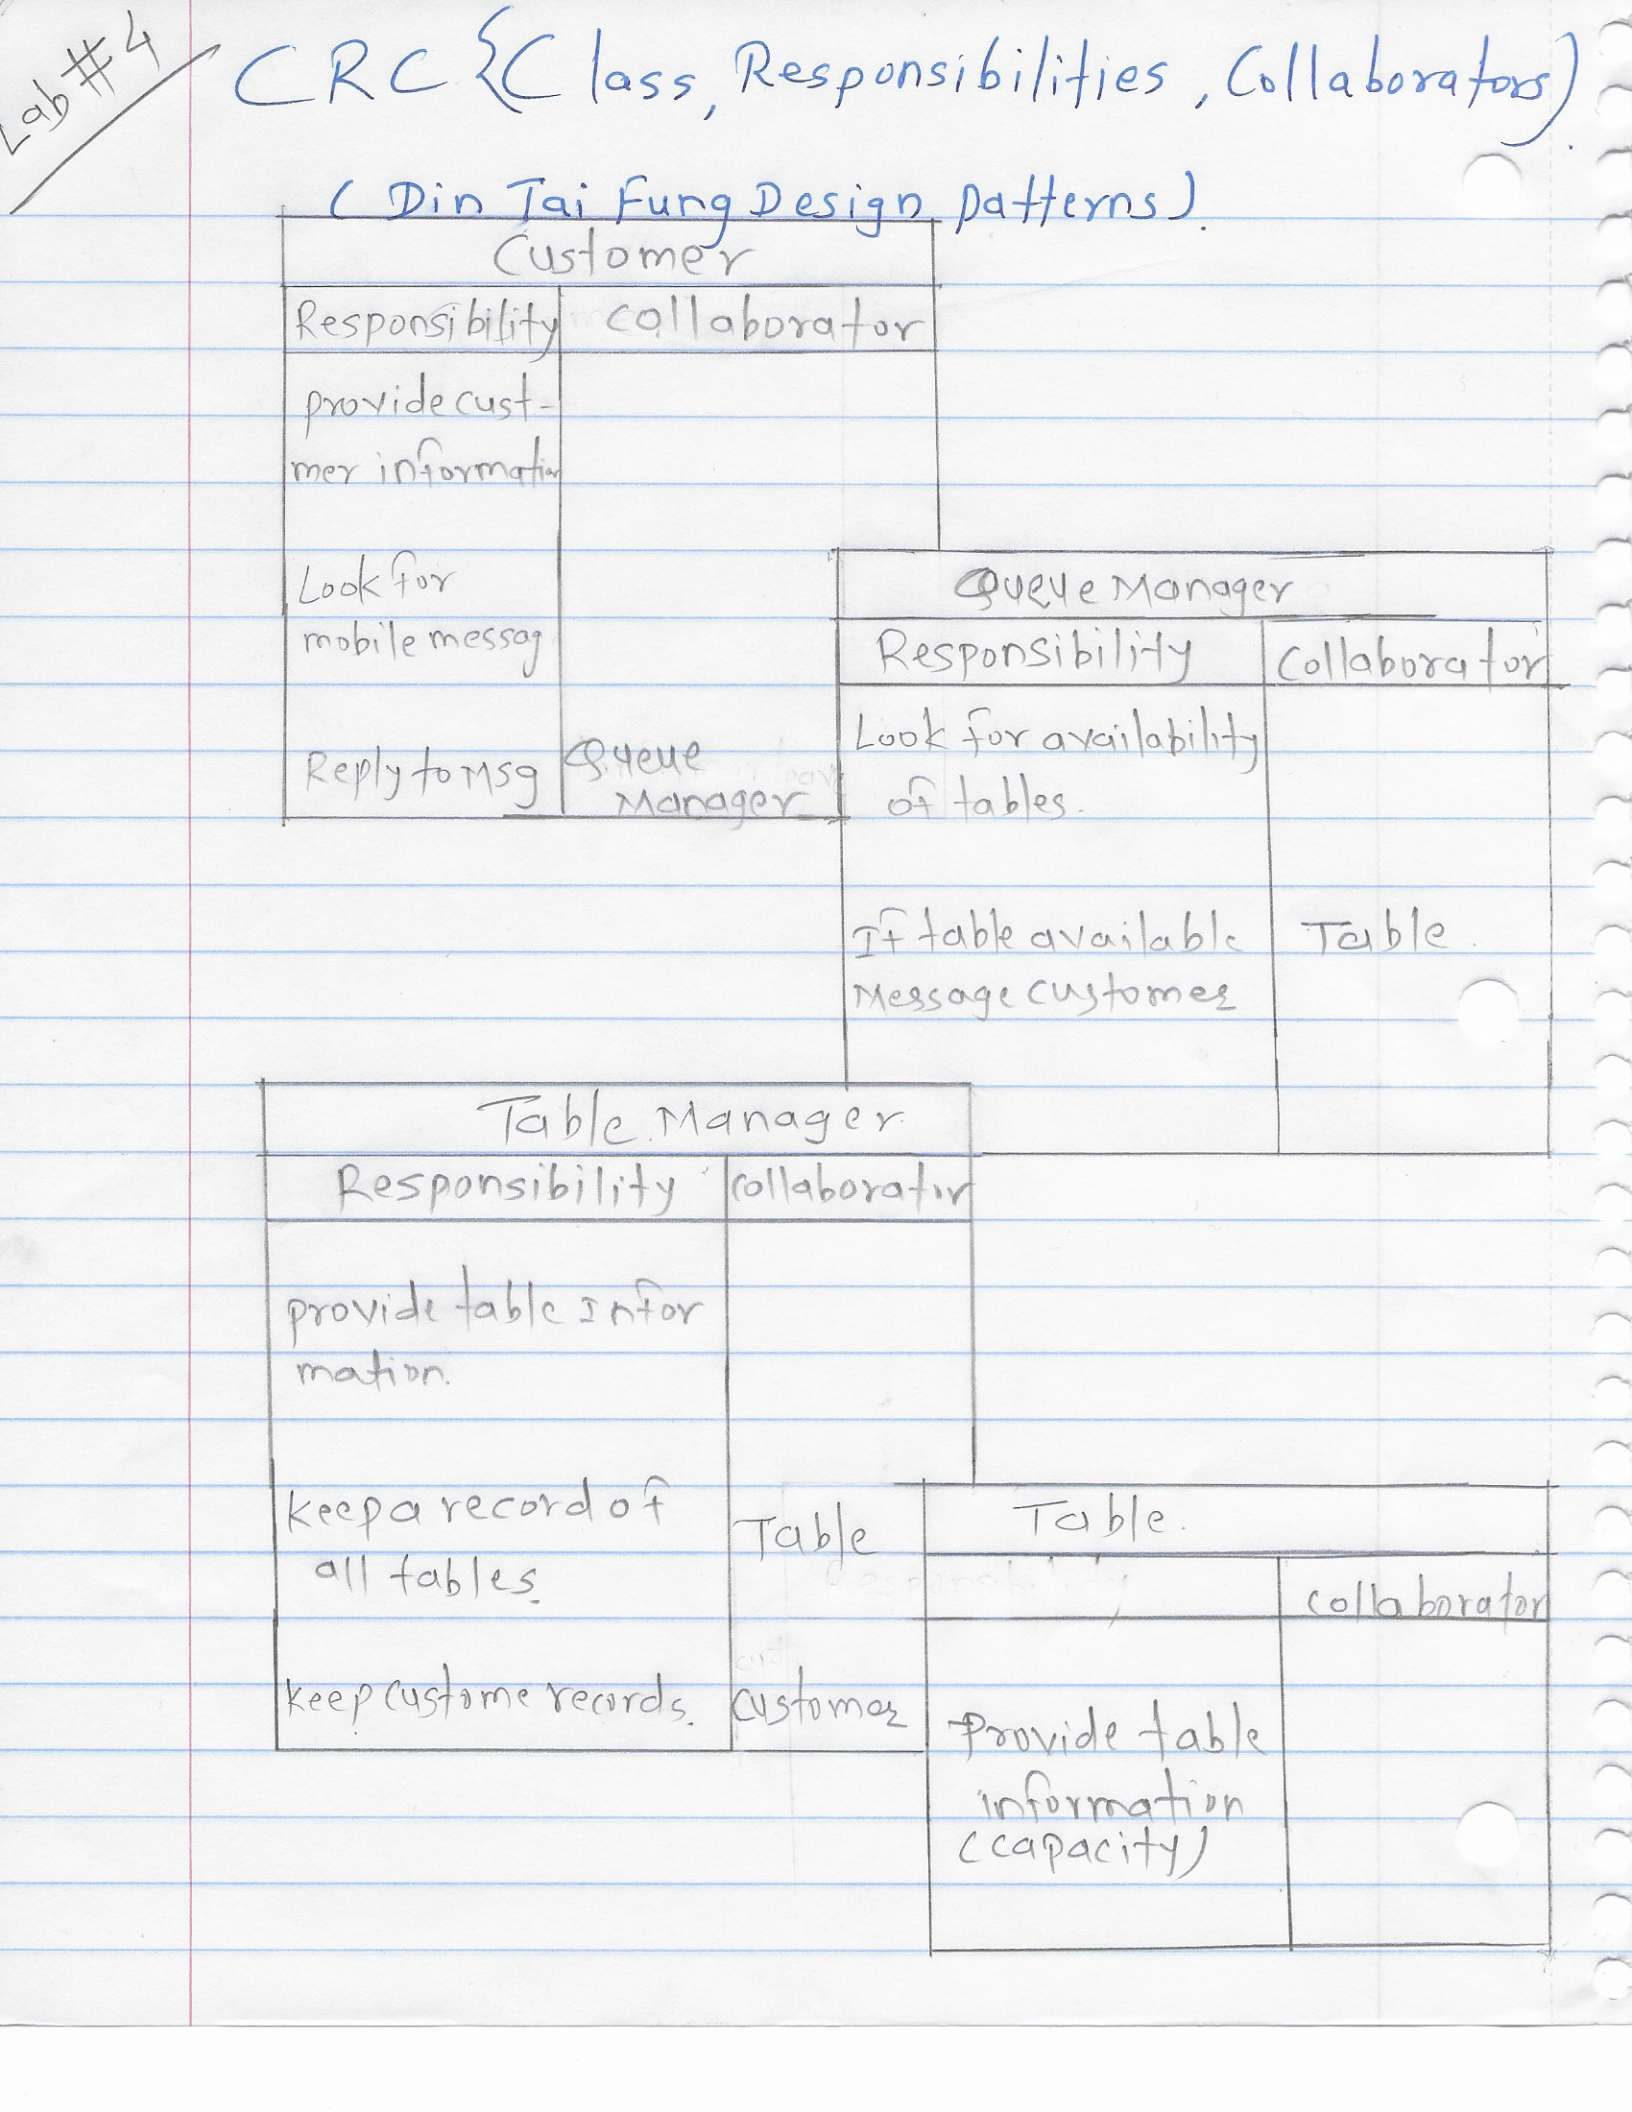 Lab #4
CRC {Class, Responsibilities, Collaborators)
(Din Tai Fung Design Patterns).
Customer
Responsibility collaborator
provide cust-
mer information
Look for
mobile messag
Reply to Msg Queue
Manager
Queue Manager
Responsibility Collaborator
Look for availability
of tables.
If table available Table.
Message customer
Table Manager
Responsibility collaborator
provide table Infor
mation.
keep a record of
all tables.
Table
keep custome records. customer
Table.
collaborator
Provide table
information
(capacity)